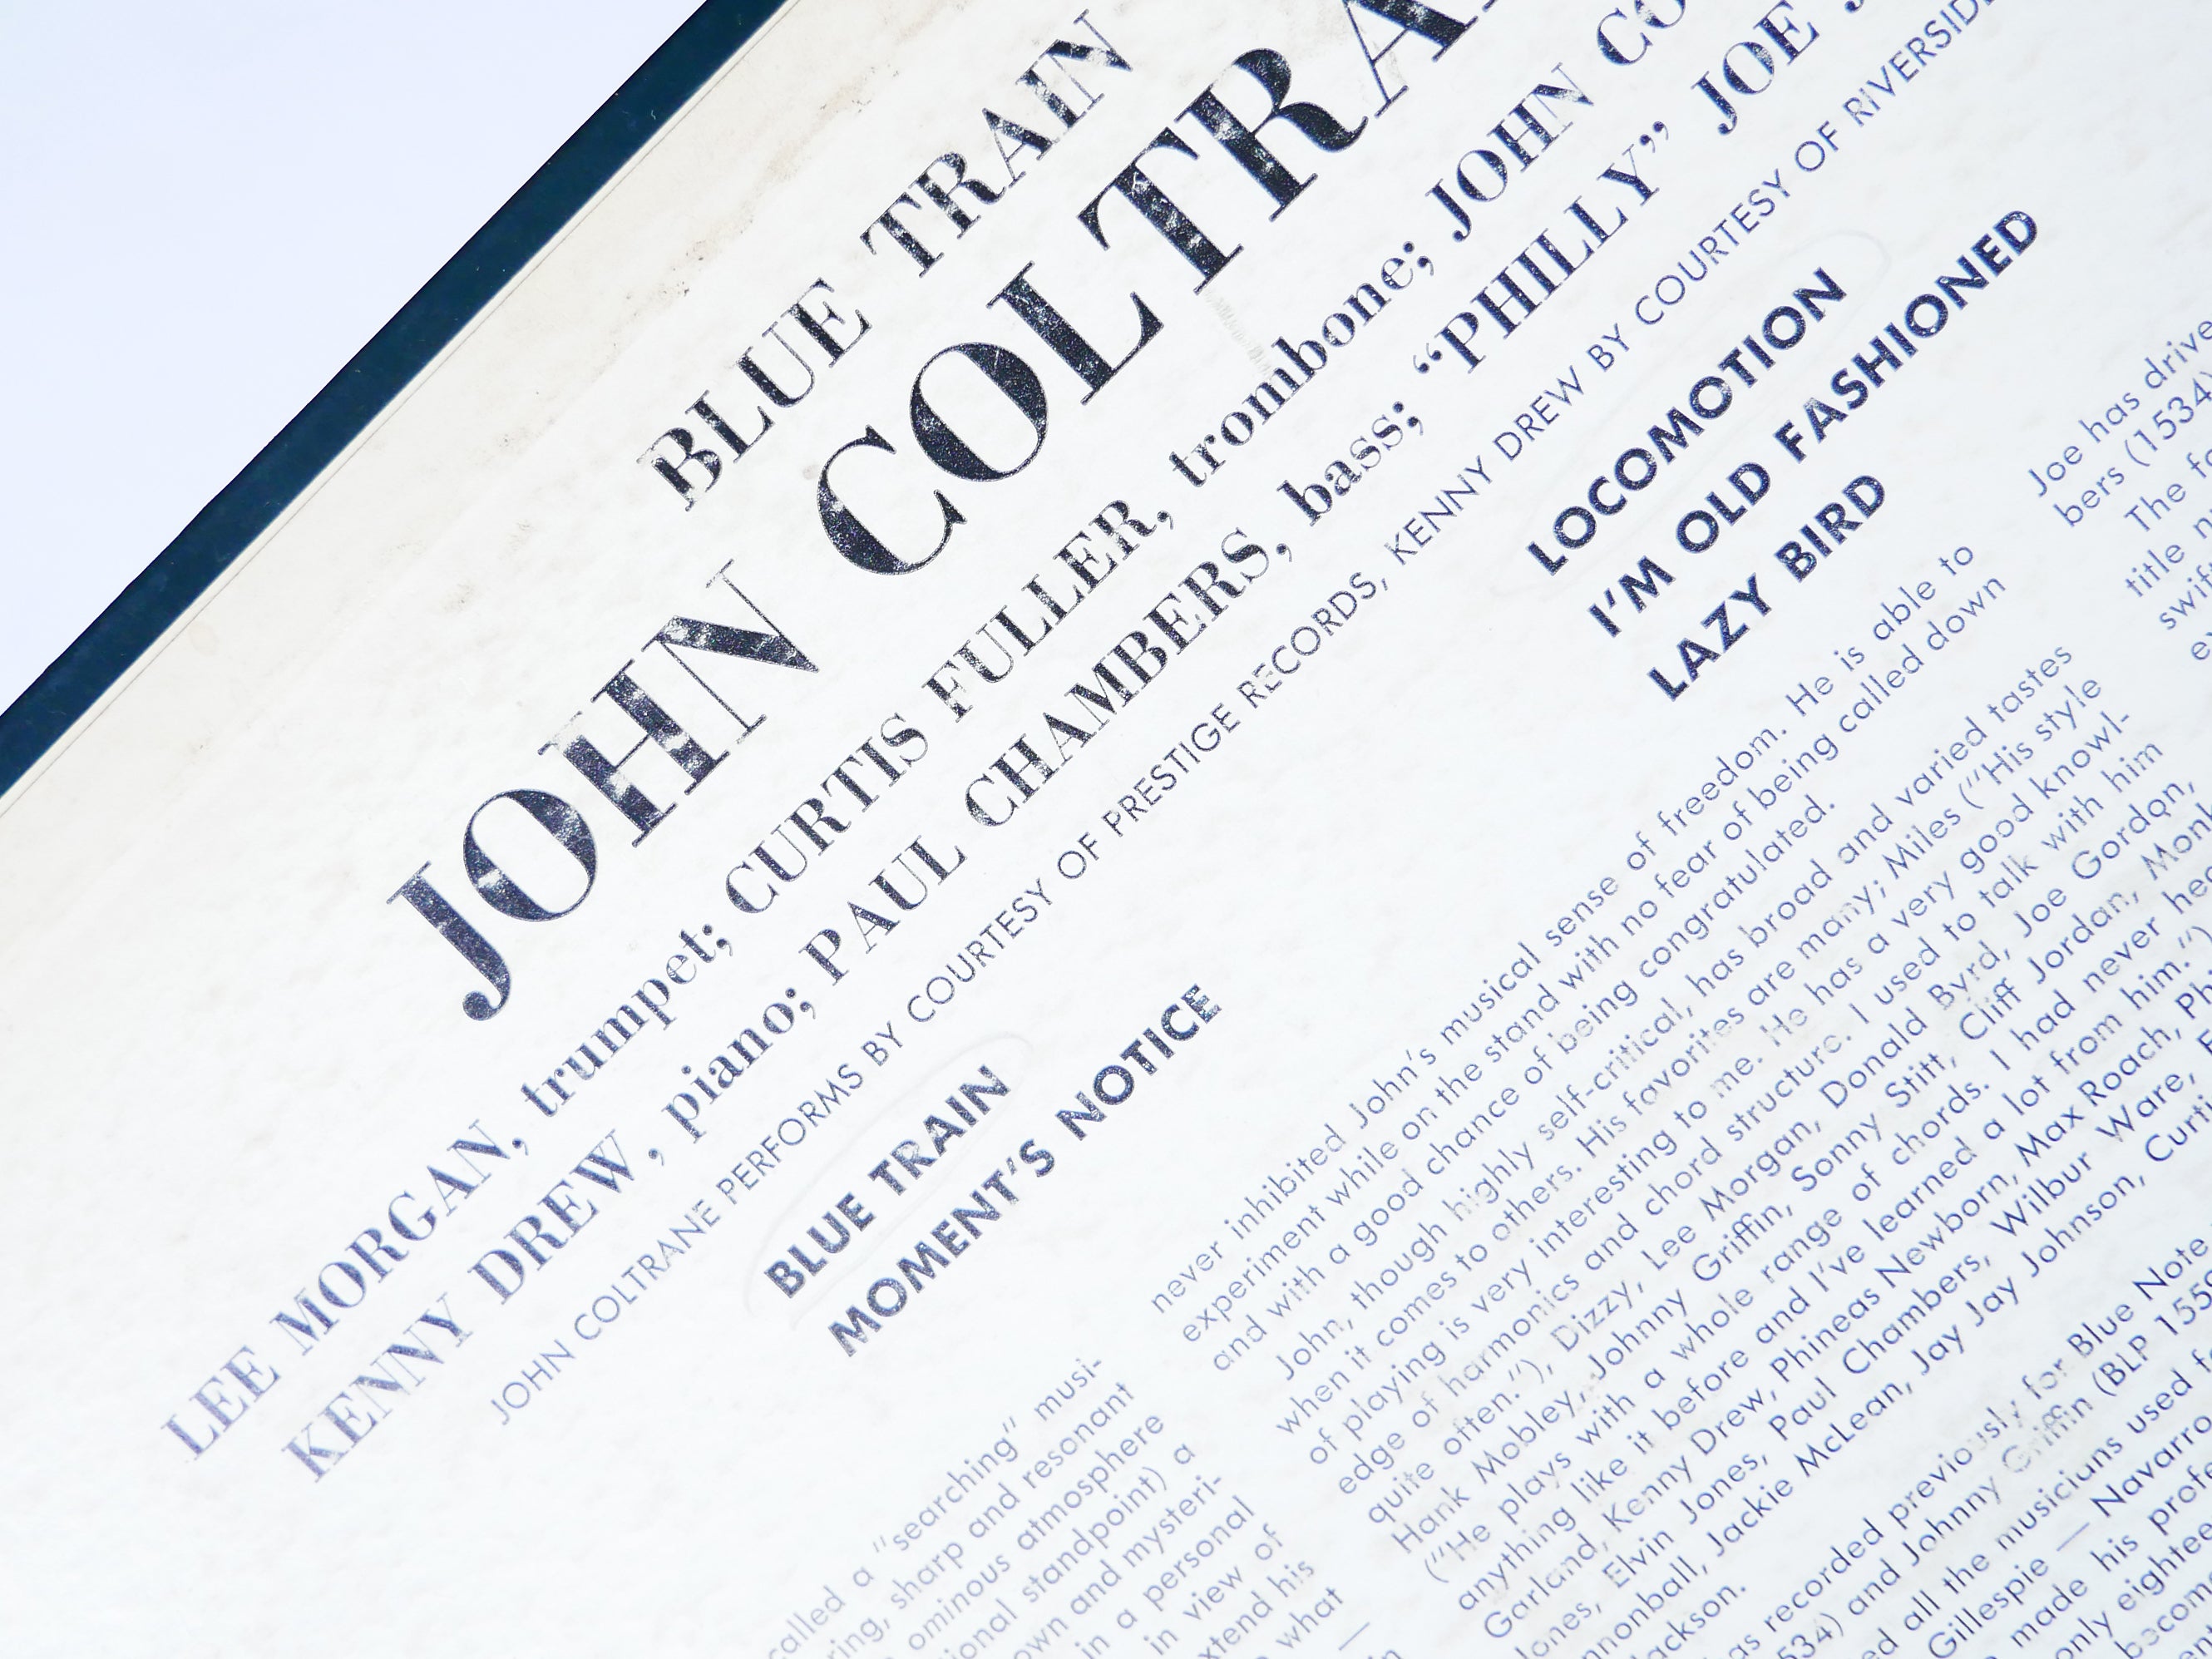 BLUE TRAIN
JOHN COLTRA
LEE MORGAN, trumpet; CURTIS FULLER, trombone; JOHN CO
KENNY DREW, piano; PAUL CHAMBERS, bass; “PHILLY” JOE
JOHN COLTRANE PERFORMS BY COURTESY OF PRESTIGE RECORDS, KENNY DREW BY COURTESY OF RIVERSIDE
BLUE TRAIN
MOMENT'S NOTICE
LOCOMOTION
I'M OLD FASHIONED
LAZY BIRD
called a "searching" musi-
ring, sharp and resonant
ominous atmosphere
ional standpoint) a
own and mysteri-
in a personal
in view of
xtend his
what
—
in
never inhibited John's musical sense of freedom. He is able to
experiment while on the stand with no fear of being called down
and with a good chance of being congratulated.
John, though highly self-critical, has broad and varied tastes
when it comes to others. His favorites are many; Miles ("His style
of playing is very interesting to me. He has a very good knowl-
edge of harmonics and chord structure. I used to talk with him
quite often."), Dizzy, Lee Morgan, Donald Byrd, Joe Gordon,
Hank Mobley, Johnny Griffin, Sonny Stitt, Cliff Jordan, Monk
("He plays with a whole range of chords. I had never hea
anything like it before and I've learned a lot from him.")
Garland, Kenny Drew, Phineas Newborn, Max Roach, Ph
Jones, Elvin Jones, Paul Chambers, Wilbur Ware,
nnonball, Jackie McLean, Jay Jay Johnson, Curti
Jackson.
as recorded previously for Blue Note
534) and Johnny Griffin (BLP 1559
ed all the musicians used f
Gillespie — Navarro
made his profe
only eightee
become
Joe has drive
bers (1534)
The fo
title n
swift